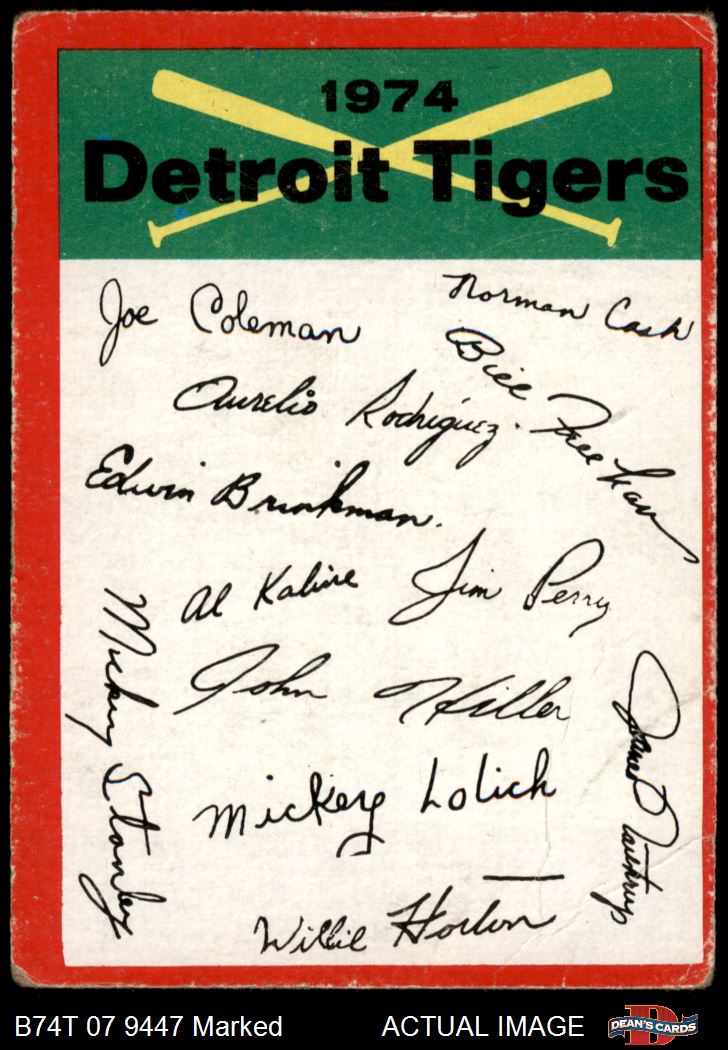 1974
Detroit Tigers
Joe Coleman
Norman Cash
Bill Freehan
Aurelio Rodriguez.
Edwin Brinkman.
Al Kaline
Jim Perry
Mickey Stanley
John Hiller
James Northrup
Mickey Lolich
Willie Horton
B74T 07 9447 Marked
ACTUAL IMAGE
D
DEAN'S CARDS